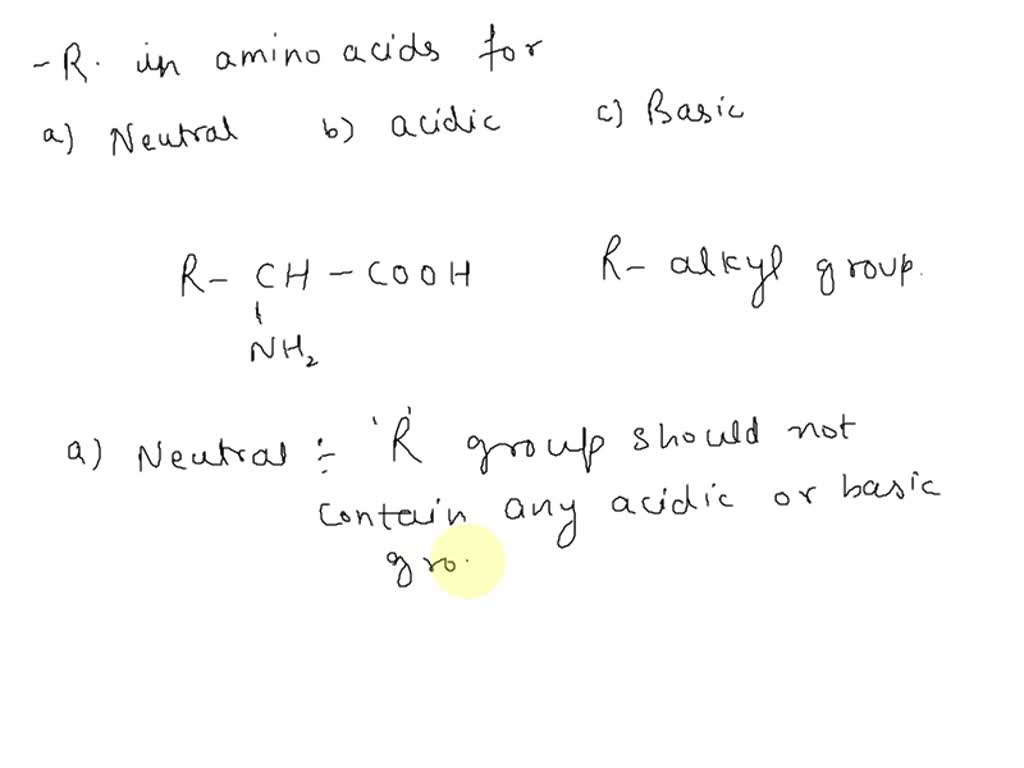 -R. in amino acids for
a) Neutral b) acidic c) Basic
R- CH - COOH R- alkyl group.
NH2
a) Neutral ÷ 'R' group should not
contain any acidic or basic
gro.